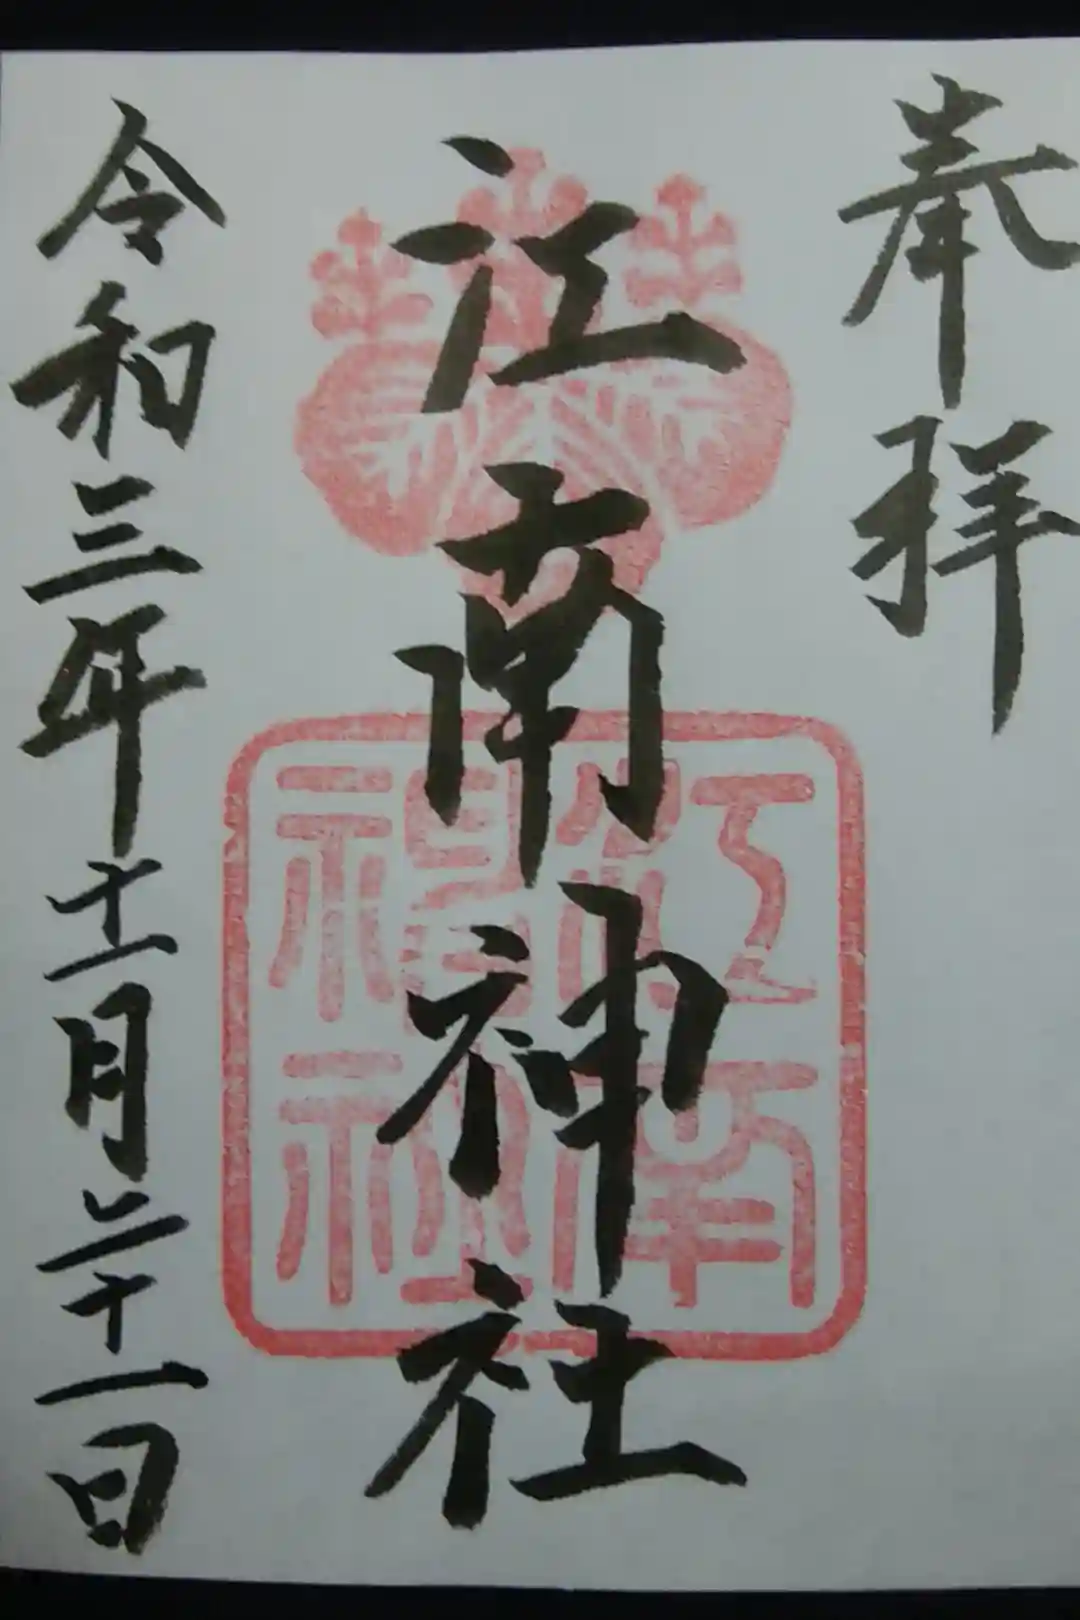 奉拝
江南神社
江南
神社
令和三年十一月二十一日